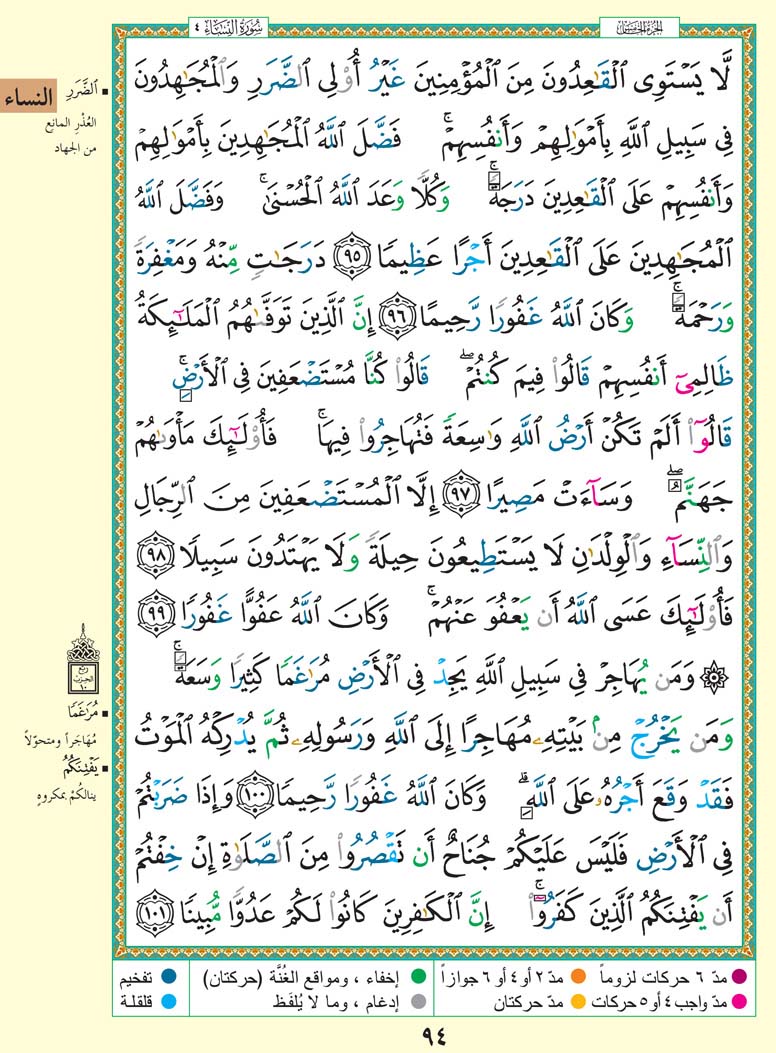 سُورَةُ النِّسَاء ٤
الجزء الخامس
لَّا يَسْتَوِى الْقَـٰعِدُونَ مِنَ الْمُؤْمِنِينَ غَيْرُ أُو۟لِى الضَّرَرِ وَالْمُجَـٰهِدُونَ
فِى سَبِيلِ اللَّهِ بِأَمْوَٰلِهِمْ وَأَنفُسِهِمْ ۚ فَضَّلَ اللَّهُ الْمُجَـٰهِدِينَ بِأَمْوَٰلِهِمْ
وَأَنفُسِهِمْ عَلَى الْقَـٰعِدِينَ دَرَجَةً ۚ وَكُلًّا وَعَدَ اللَّهُ الْحُسْنَىٰ ۚ وَفَضَّلَ اللَّهُ
الْمُجَـٰهِدِينَ عَلَى الْقَـٰعِدِينَ أَجْرًا عَظِيمًا ٩٥ دَرَجَـٰتٍ مِّنْهُ وَمَغْفِرَةً
وَرَحْمَةً ۚ وَكَانَ اللَّهُ غَفُورًا رَّحِيمًا ٩٦ إِنَّ الَّذِينَ تَوَفَّىٰهُمُ الْمَلَـٰٓئِكَةُ
ظَالِمِىٓ أَنفُسِهِمْ قَالُوا۟ فِيمَ كُنتُمْ ۖ قَالُوا۟ كُنَّا مُسْتَضْعَفِينَ فِى الْأَرْضِ ۚ
قَالُوٓا۟ أَلَمْ تَكُنْ أَرْضُ اللَّهِ وَٰسِعَةً فَتُهَاجِرُوا۟ فِيهَا ۚ فَأُو۟لَـٰٓئِكَ مَأْوَىٰهُمْ
جَهَنَّمُ ۖ وَسَآءَتْ مَصِيرًا ٩٧ إِلَّا الْمُسْتَضْعَفِينَ مِنَ الرِّجَالِ
وَالنِّسَآءِ وَالْوِلْدَٰنِ لَا يَسْتَطِيعُونَ حِيلَةً وَلَا يَهْتَدُونَ سَبِيلًا ٩٨
فَأُو۟لَـٰٓئِكَ عَسَى اللَّهُ أَن يَعْفُوَ عَنْهُمْ ۚ وَكَانَ اللَّهُ عَفُوًّا غَفُورًا ٩٩
۞ وَمَن يُهَاجِرْ فِى سَبِيلِ اللَّهِ يَجِدْ فِى الْأَرْضِ مُرَٰغَمًا كَثِيرًا وَسَعَةً ۚ
وَمَن يَخْرُجْ مِنۢ بَيْتِهِۦ مُهَاجِرًا إِلَى اللَّهِ وَرَسُولِهِۦ ثُمَّ يُدْرِكْهُ الْمَوْتُ
فَقَدْ وَقَعَ أَجْرُهُۥ عَلَى اللَّهِ ۗ وَكَانَ اللَّهُ غَفُورًا رَّحِيمًا ١٠٠ وَإِذَا ضَرَبْتُمْ
فِى الْأَرْضِ فَلَيْسَ عَلَيْكُمْ جُنَاحٌ أَن تَقْصُرُوا۟ مِنَ الصَّلَوٰةِ إِنْ خِفْتُمْ
أَن يَفْتِنَكُمُ الَّذِينَ كَفَرُوٓا۟ ۚ إِنَّ الْكَـٰفِرِينَ كَانُوا۟ لَكُمْ عَدُوًّا مُّبِينًا ١٠١
النساء
الضَّرَرِ
العُذْرِ المانِع
من الجهاد
ربع
الحزب
١٠
مُرَٰغَمًا
مُهَاجَراً ومتحوّلاً
يَفْتِنَكُمُ
ينالكُمْ بمكروهٍ
مدّ ٦ حركات لزوماً
مدّ ٢ أو ٤ أو ٦ جوازاً
إخفاء ، ومواقع الغُنَّة (حركتان)
تفخيم
مدّ واجب ٤ أو ٥ حركات
مدّ حركتان
إدغام ، وما لا يُلفَظ
قلقلة
٩٤